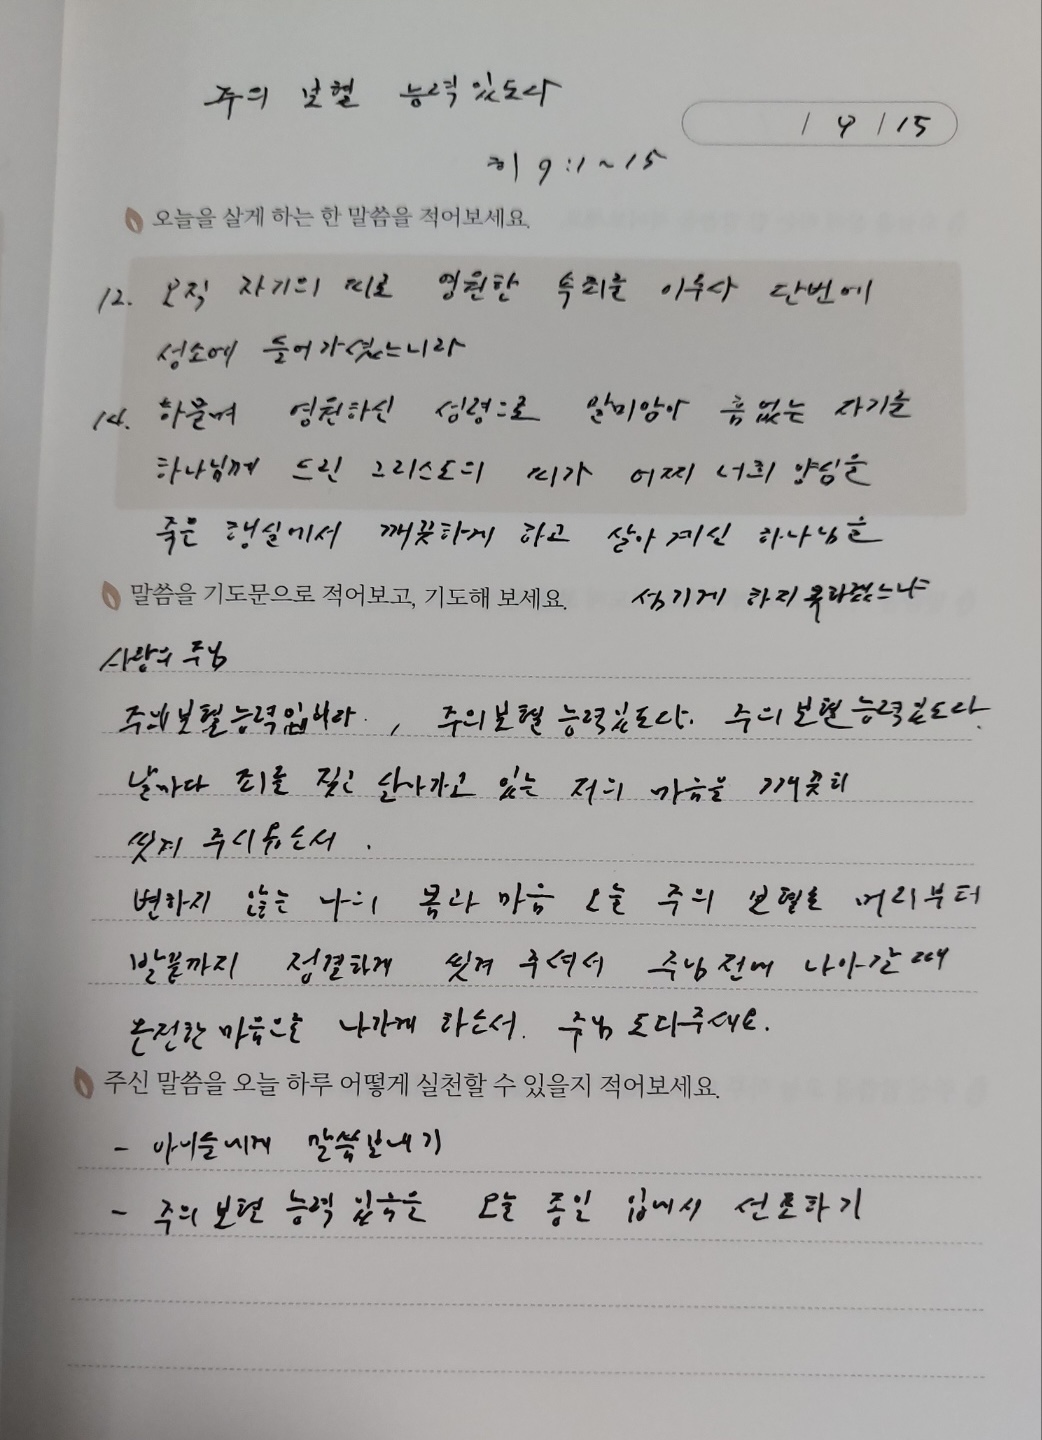 주의 보혈 능력있도다
/ 4 / 15
히 9:1~15
오늘을 살게 하는 한 말씀을 적어보세요.
12. 오직 자기의 피로 영원한 속죄를 이루사 단번에
성소에 들어가셨느니라
14. 하물며 영원하신 성령으로 말미암아 흠없는 자기를
하나님께 드린 그리스도의 피가 어찌 너희 양심을
죽은 행실에서 깨끗하게 하고 살아계신 하나님을
섬기게 하지 못하겠느냐
말씀을 기도문으로 적어보고, 기도해 보세요.
사랑의 주님
주의 보혈 능력입니다. , 주의 보혈 능력있도다. 주의 보혈 능력있도다.
날마다 죄를 짓고 살아가고 있는 저의 마음을 깨끗히
씻겨 주시옵소서.
변하지 않는 나의 몸과 마음 오늘 주의 보혈로 머리부터
발끝까지 정결하게 씻겨 주셔서 주님 전에 나아갈 때
온전한 마음으로 나가게 하소서. 주님 도와주세요.
주신 말씀을 오늘 하루 어떻게 실천할 수 있을지 적어보세요.
- 아이들에게 말씀보내기
- 주의 보혈 능력 있음을 오늘 종일 입에서 선포하기